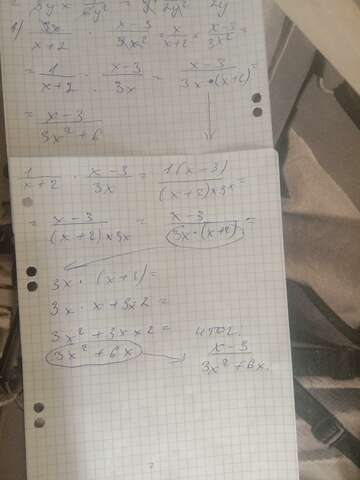 1) 3x/(x+2) · (x-3)/(9x²) = x/(x+2) · (x-3)/(3x²) =
= 1/(x+2) · (x-3)/(3x) = (x-3)/(3x·(x+2)) =
= (x-3)/(3x²+6)
1/(x+2) · (x-3)/(3x) = 1(x-3)/((x+2)×3x) =
= (x-3)/((x+2)×3x) = (x-3)/(3x·(x+2)) =
3x · (x+2) =
3x · x + 3x2 =
3x² + 3x×2 =
3x² + 6x
итог:
(x-3)/(3x²+6x)